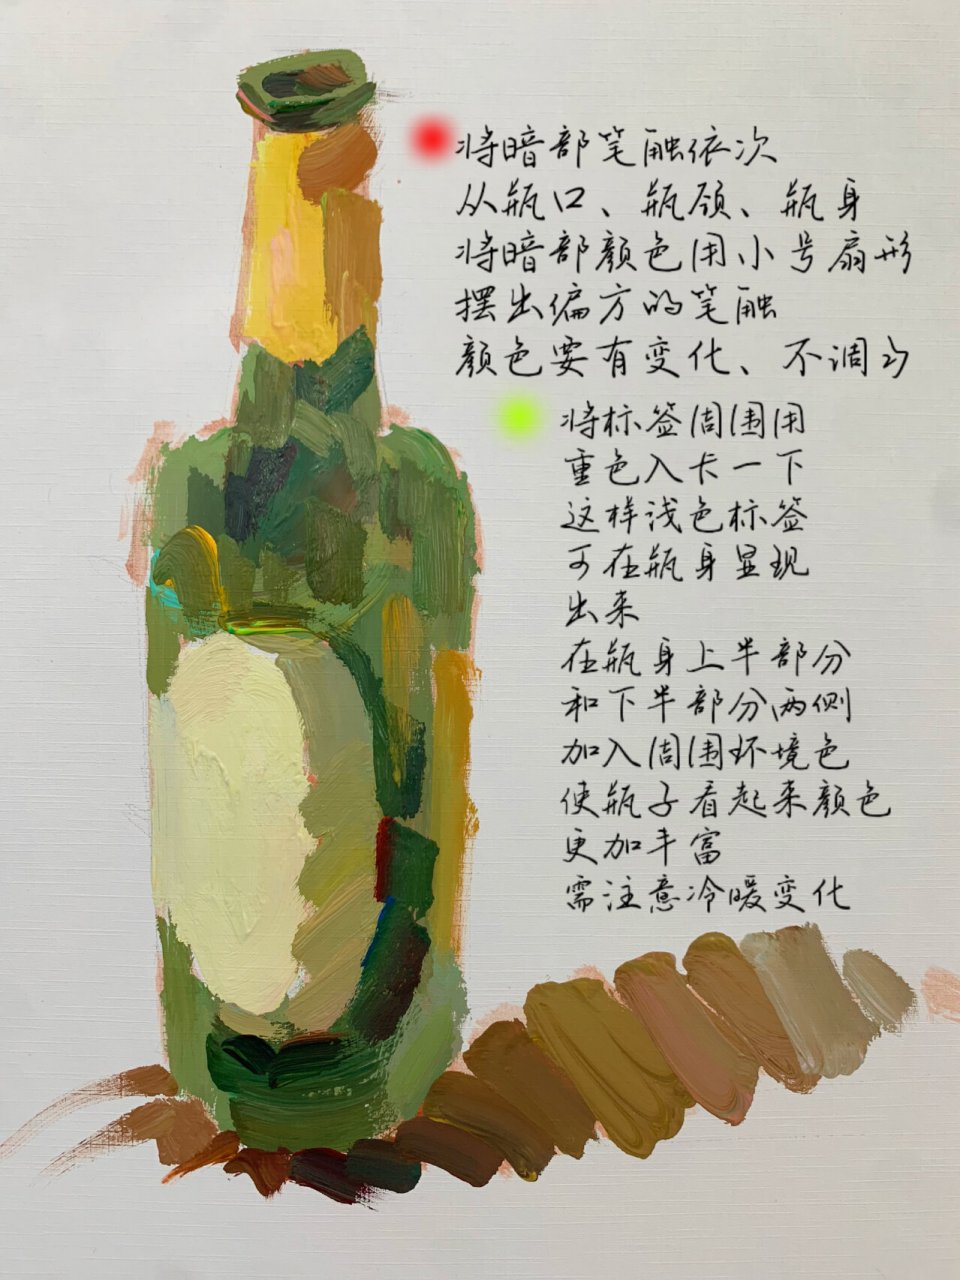 将暗部笔触依次
从瓶口、瓶颈、瓶身
将暗部颜色用小号扇形
摆出偏方的笔触
颜色要有变化、不调匀
将标签周围用
重色入卡一下
这样浅色标签
可在瓶身显现
出来
在瓶身上半部分
和下半部分两侧
加入周围环境色
使瓶子看起来颜色
更加丰富
需注意冷暖变化